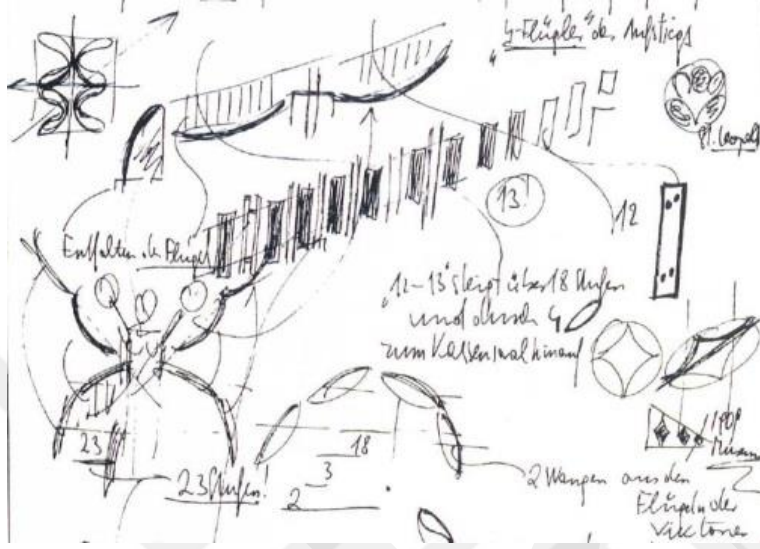 "4-Flügler" des Aufstiegs
St. Leopold
13
12
Entfalten der Flügel
"12-13" steigt über 18 Stufen
und durch 4
zum Kassensaal hinauf
23
18
3
2
23 Stufen!
1908
2 Wangen aus den
Flügeln der